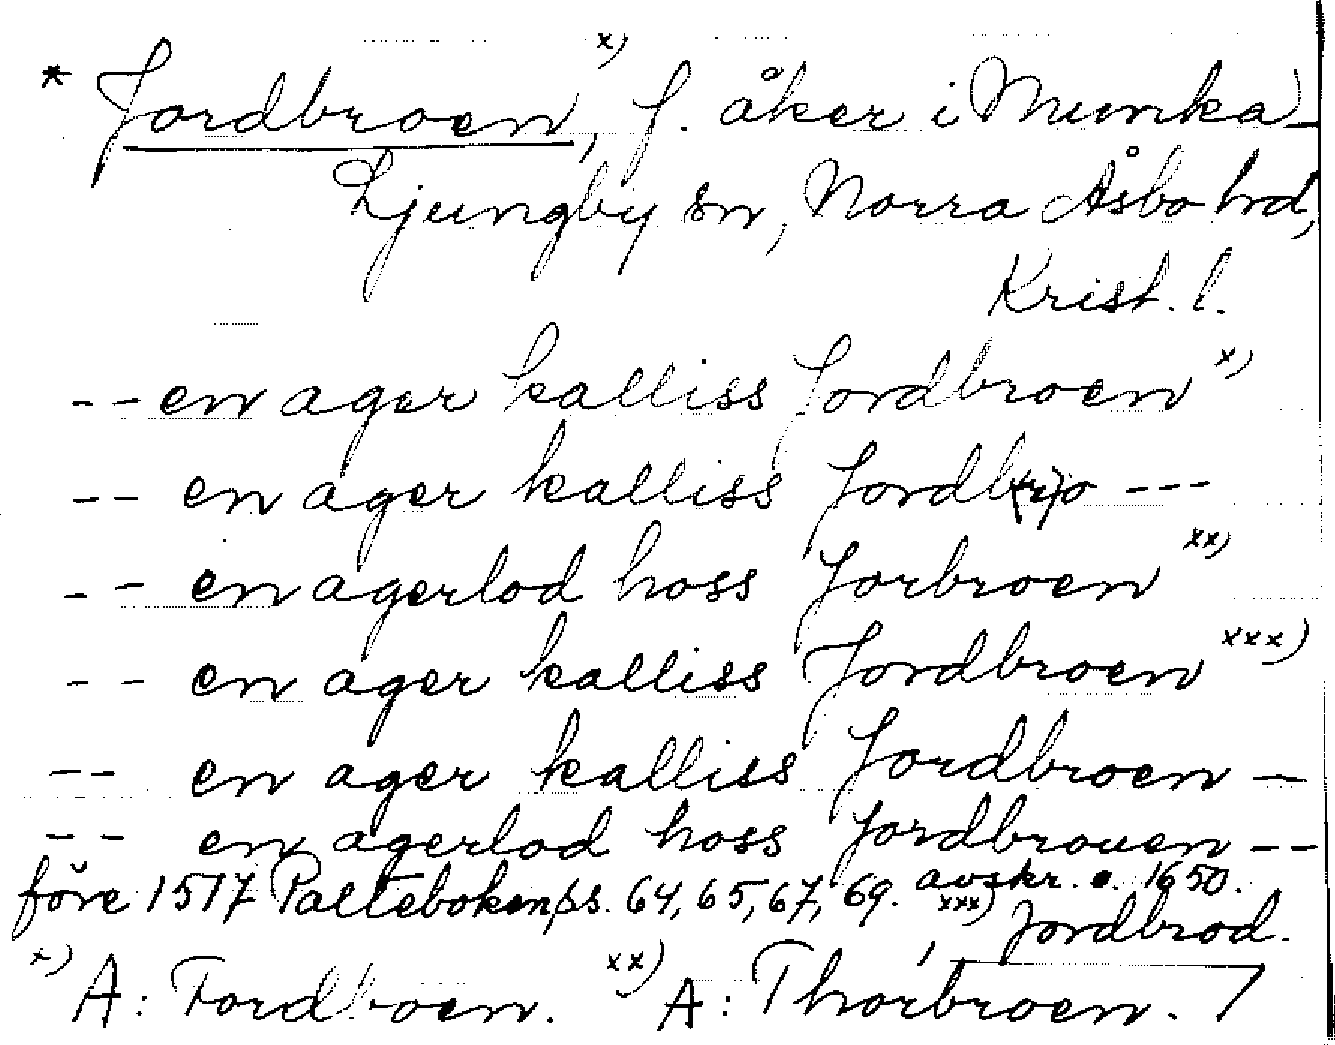 * Jordbroen, x) f. åker i Munka-
Ljungby sn, Norra Åsbo hd,
Krist. l.
-- en ager kalliss Jordbroen x)
-- en ager kalliss Jordb(r)o ---
-- en agerlod hoss Jorbroen xx)
-- en ager kalliss Jordbroen xxx)
-- en ager kalliss Jordbroen --
-- en agerlod hoss Jordbrouen --
före 1517 Palteboken, s. 64, 65, 67, 69. avskr. o. 1650.
xxx) Jordbrod.
x) A: Fordbroen. xx) A: Thorbroen.